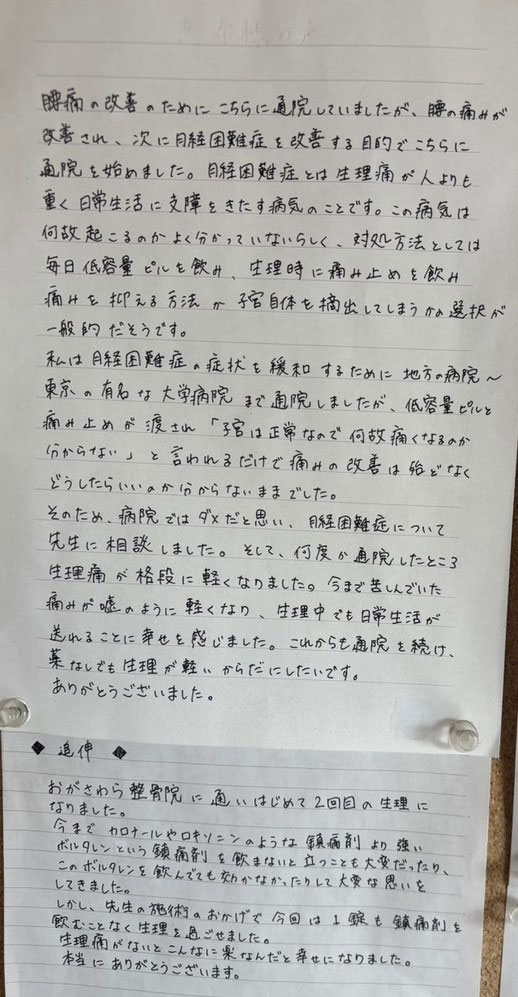 患者様の声
腰痛の改善のためにこちらに通院していましたが、腰の痛みが
改善され、次に月経困難症を改善する目的でこちらに
通院を始めました。月経困難症とは生理痛が人よりも
重く日常生活に支障をきたす病気のことです。この病気は
何故起こるのかよく分かっていないらしく、対処方法としては
毎日低容量ピルを飲み、生理時に痛み止めを飲み
痛みを抑える方法か子宮自体を摘出してしまうかの選択が
一般的だそうです。
私は月経困難症の症状を緩和するために地方の病院〜
東京の有名な大学病院まで通院しましたが、低容量ピルと
痛み止めが渡され「子宮は正常なので何故痛くなるのか
分からない」と言われるだけで痛みの改善は殆どなく
どうしたらいいのか分からないままでした。
そのため、病院ではダメだと思い、月経困難症について
先生に相談しました。そして、何度か通院したところ
生理痛が格段に軽くなりました。今まで苦しんでいた
痛みが嘘のように軽くなり、生理中でも日常生活が
送れることに幸せを感じました。これからも通院を続け、
薬なしでも生理が軽いからだにしたいです。
ありがとうございました。
◆ 追伸 ◆
おがさわら整骨院に通いはじめて2回目の生理に
なりました。
今までカロナールやロキソニンのような鎮痛剤より強い
ボルタレンという鎮痛剤を飲まないと立つことも大変だったり、
このボルタレンを飲んでても効かなかったりして大変な思いを
してきました。
しかし、先生の施術のおかげで今回は1錠も鎮痛剤を
飲むことなく生理を過ごせました。
生理痛がないとこんなに楽なんだと幸せになりました。
本当にありがとうございます。